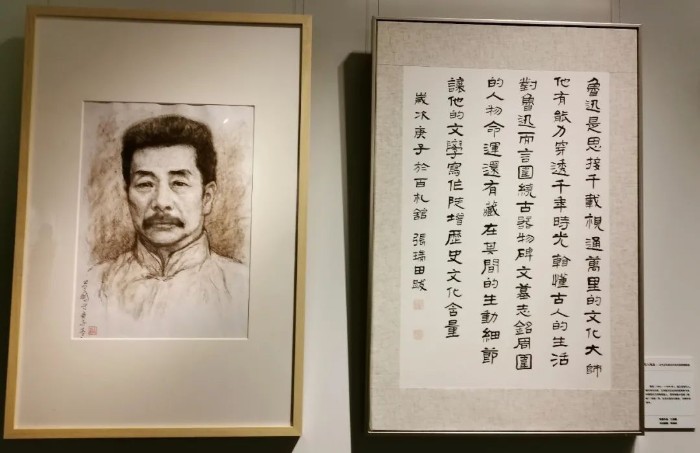 魯迅是思接千載視通萬里的文化大師
他有能力穿透千年時光讀懂古人的生活
對魯迅而言圍繞古器物碑文墓志銘周圍
的人物命運還有藏在其間的生動細節
讓他的文學寫作陡增歷史文化含量
歲次庚子於百札館 張瑞田跋